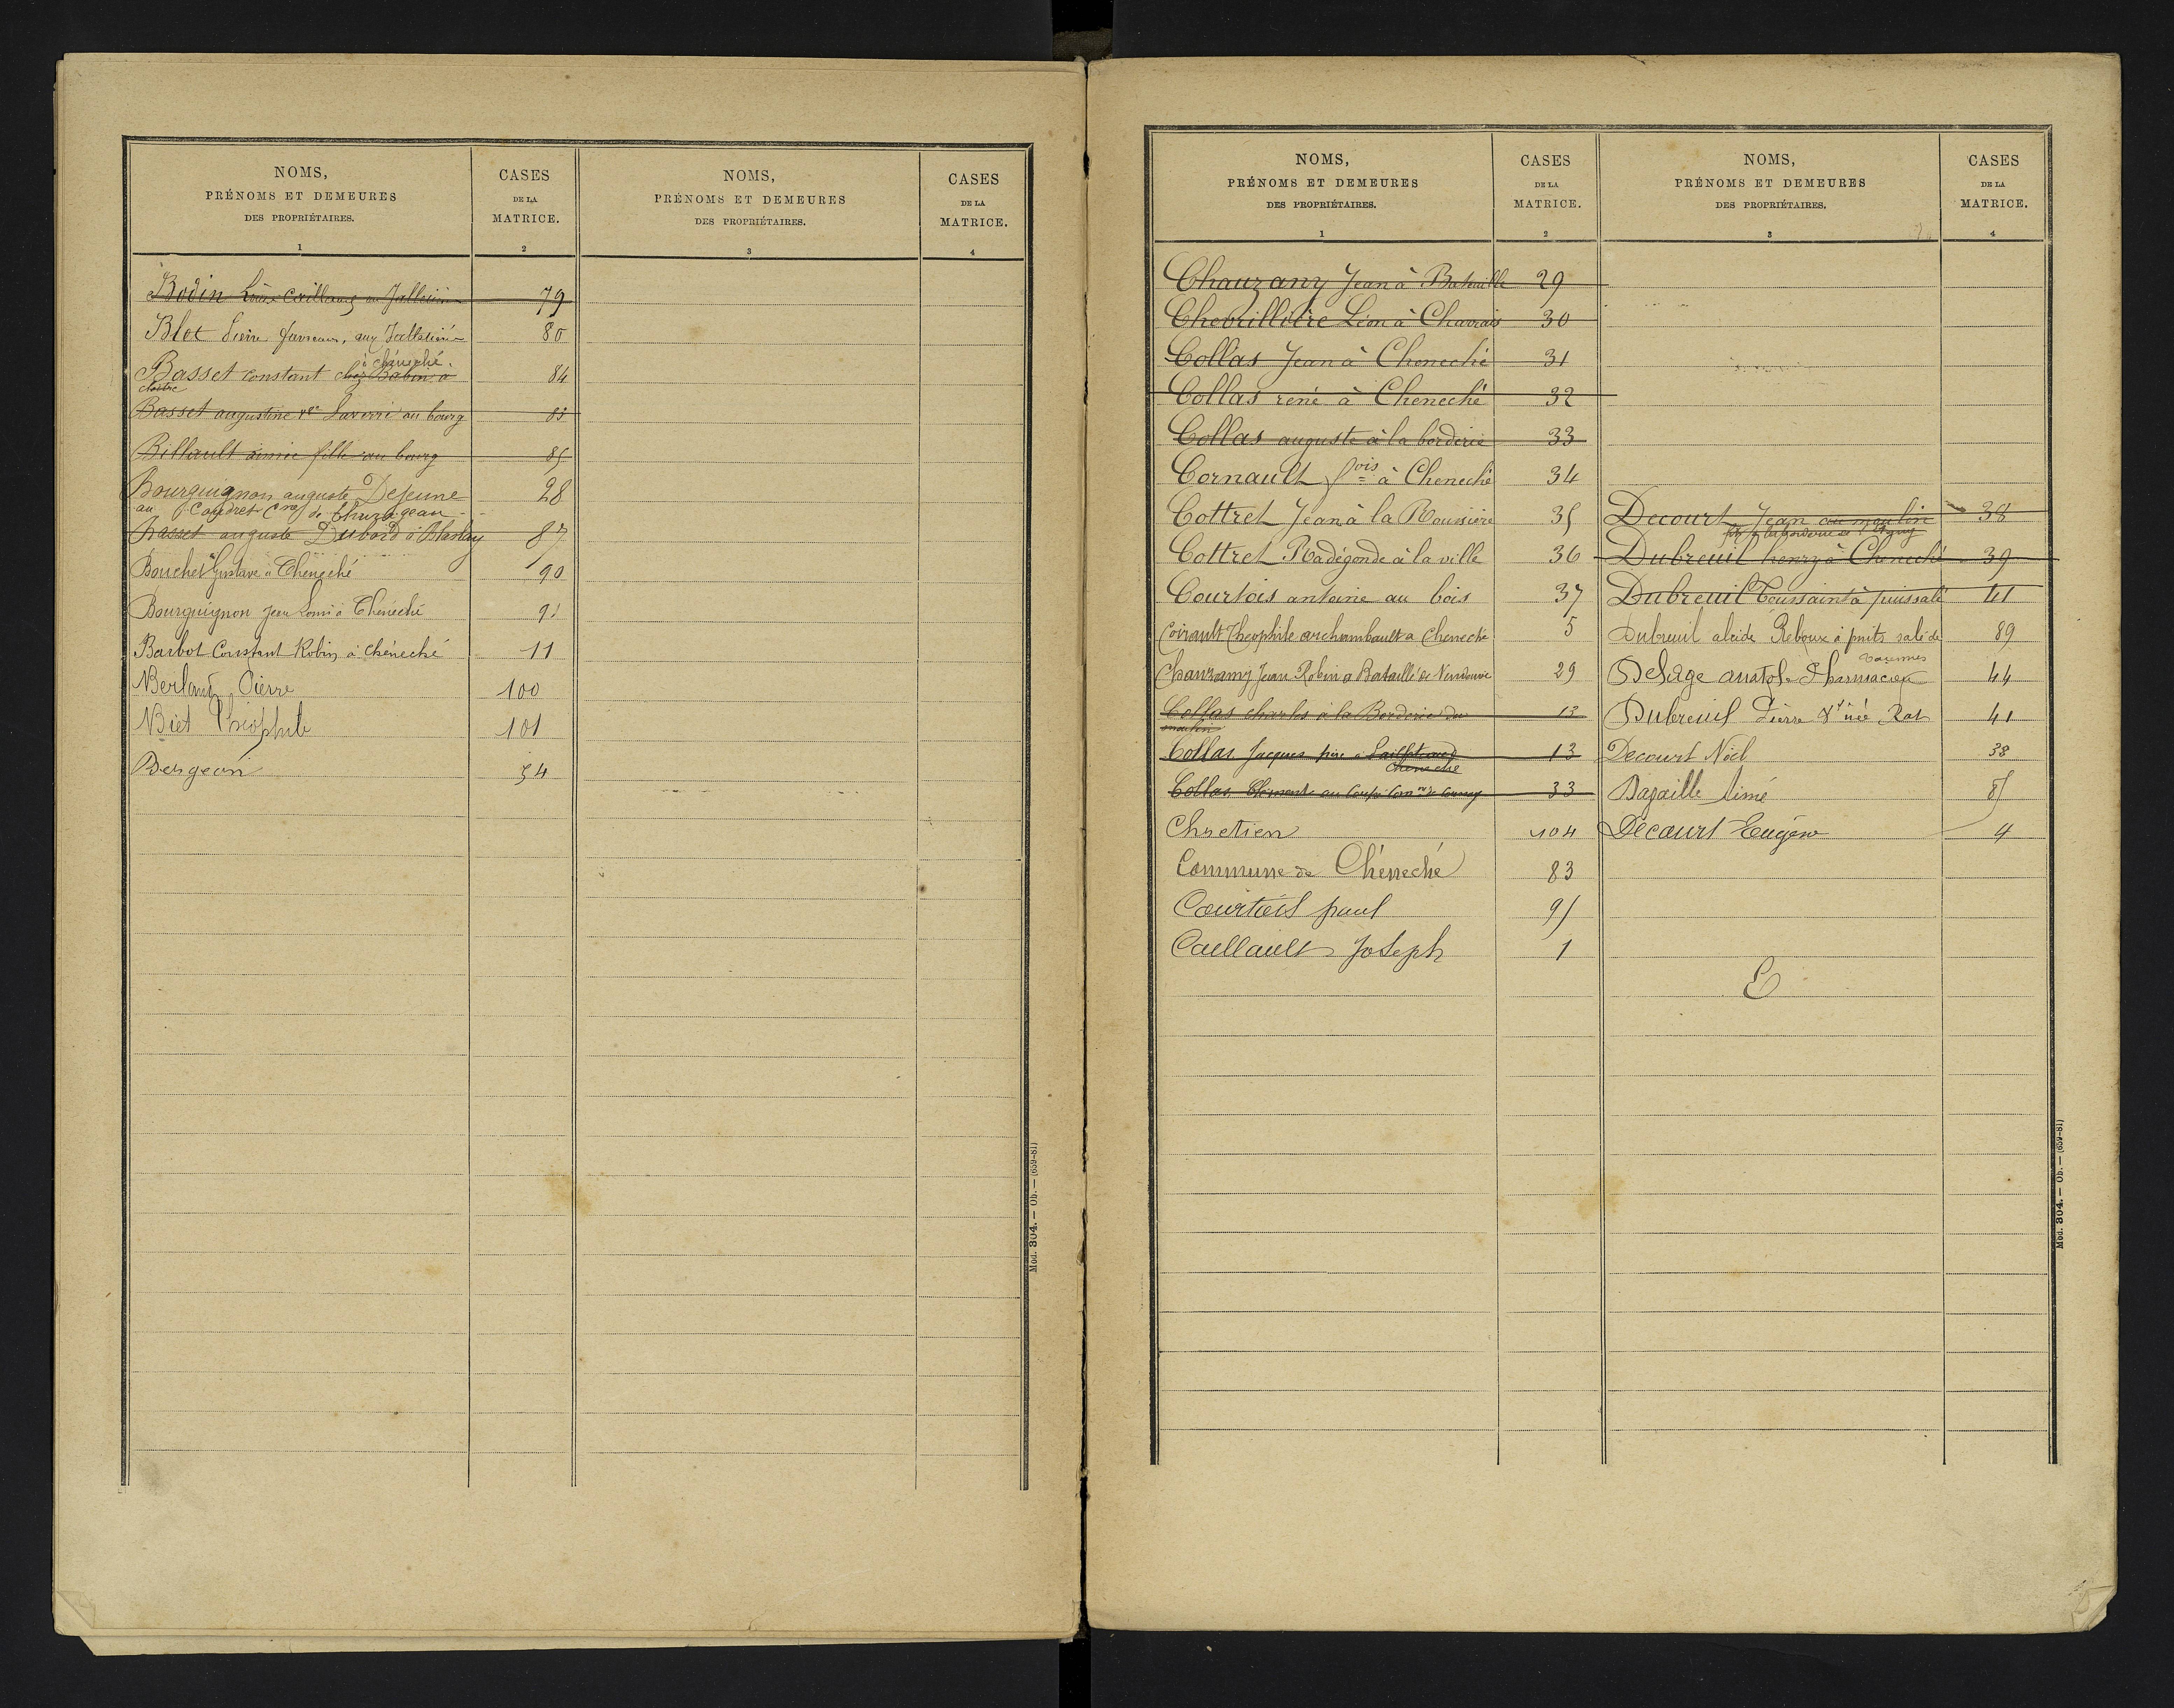 NOMS,
PRÉNOMS ET DEMEURES
DES PROPRIÉTAIRES.
1
CASES
DE LA
MATRICE.
2
NOMS,
PRÉNOMS ET DEMEURES
DES PROPRIÉTAIRES.
3
CASES
DE LA
MATRICE.
4
Bodin Louis 79
Blet Pierre aux 80
à chéneché
Basset constant chez Babin à 84
cloitre
Basset augustine au bourg 83
Billault aimée fille au bourg 85
Bourguignon auguste Dejeune 28
au Coudret Cne de Thurageau
Basset auguste Dubois à Blaslay 87
Bouchet Gustave à Cheneché 90
Bourguignon Jean Louis à Chéneché 91
Barbot Constant Robin à chéneché 11
Berland Pierre 100
Biet Théophile 101
Bergeon 54
Mod. 304. — Ob. — (659-81)
NOMS,
PRÉNOMS ET DEMEURES
DES PROPRIÉTAIRES.
1
CASES
DE LA
MATRICE.
2
NOMS,
PRÉNOMS ET DEMEURES
DES PROPRIÉTAIRES.
3
CASES
DE LA
MATRICE.
4
Chauzamy Jean à Bataille 29
Chevrillière Léon à 30
Collas Jean à Cheneché 31
Collas rené à Cheneché 32
Collas auguste à la borderie 33
Cornault fois à Cheneché 34
Cottret Jean à la Roussière 35
Cottret Radégonde à la ville 36
Courtois antoine au bois 37
Coirault Théophile archambault a Cheneché 5
Chauzamy Jean Robin a Bataillé de Vendeuvre 29
Collas charles à la Borderie du 13
moulin
Collas Jacques père à 13
Cheneché
Collas Clément au 33
Chretien 104
Commune de Chéneché 83
Courtois paul 95
Caillault Joseph 1
Decourt Jean au moulin 38
Dubreuil henry à Cheneché 39
Dubreuil Toussaint à puissalé 41
Dubreuil alcide Reboux à puits salé de 89
varennes
Delage anatole Pharmacien 44
Dubreuil Pierre Ve née Rat 41
Decourt Noël 38
Bazaille Aimé 85
Decourt Eugène 4
E
Mod. 304. — Ob. — (659-81)